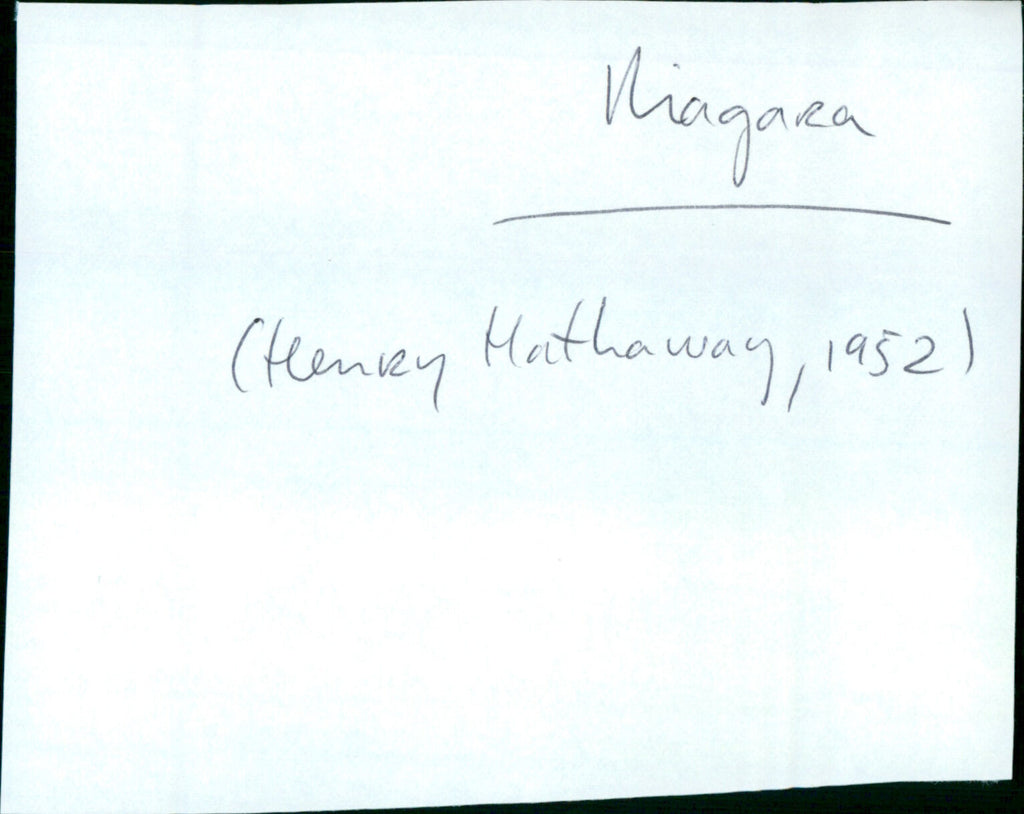 Niagara
(Henry Hathaway, 1952)